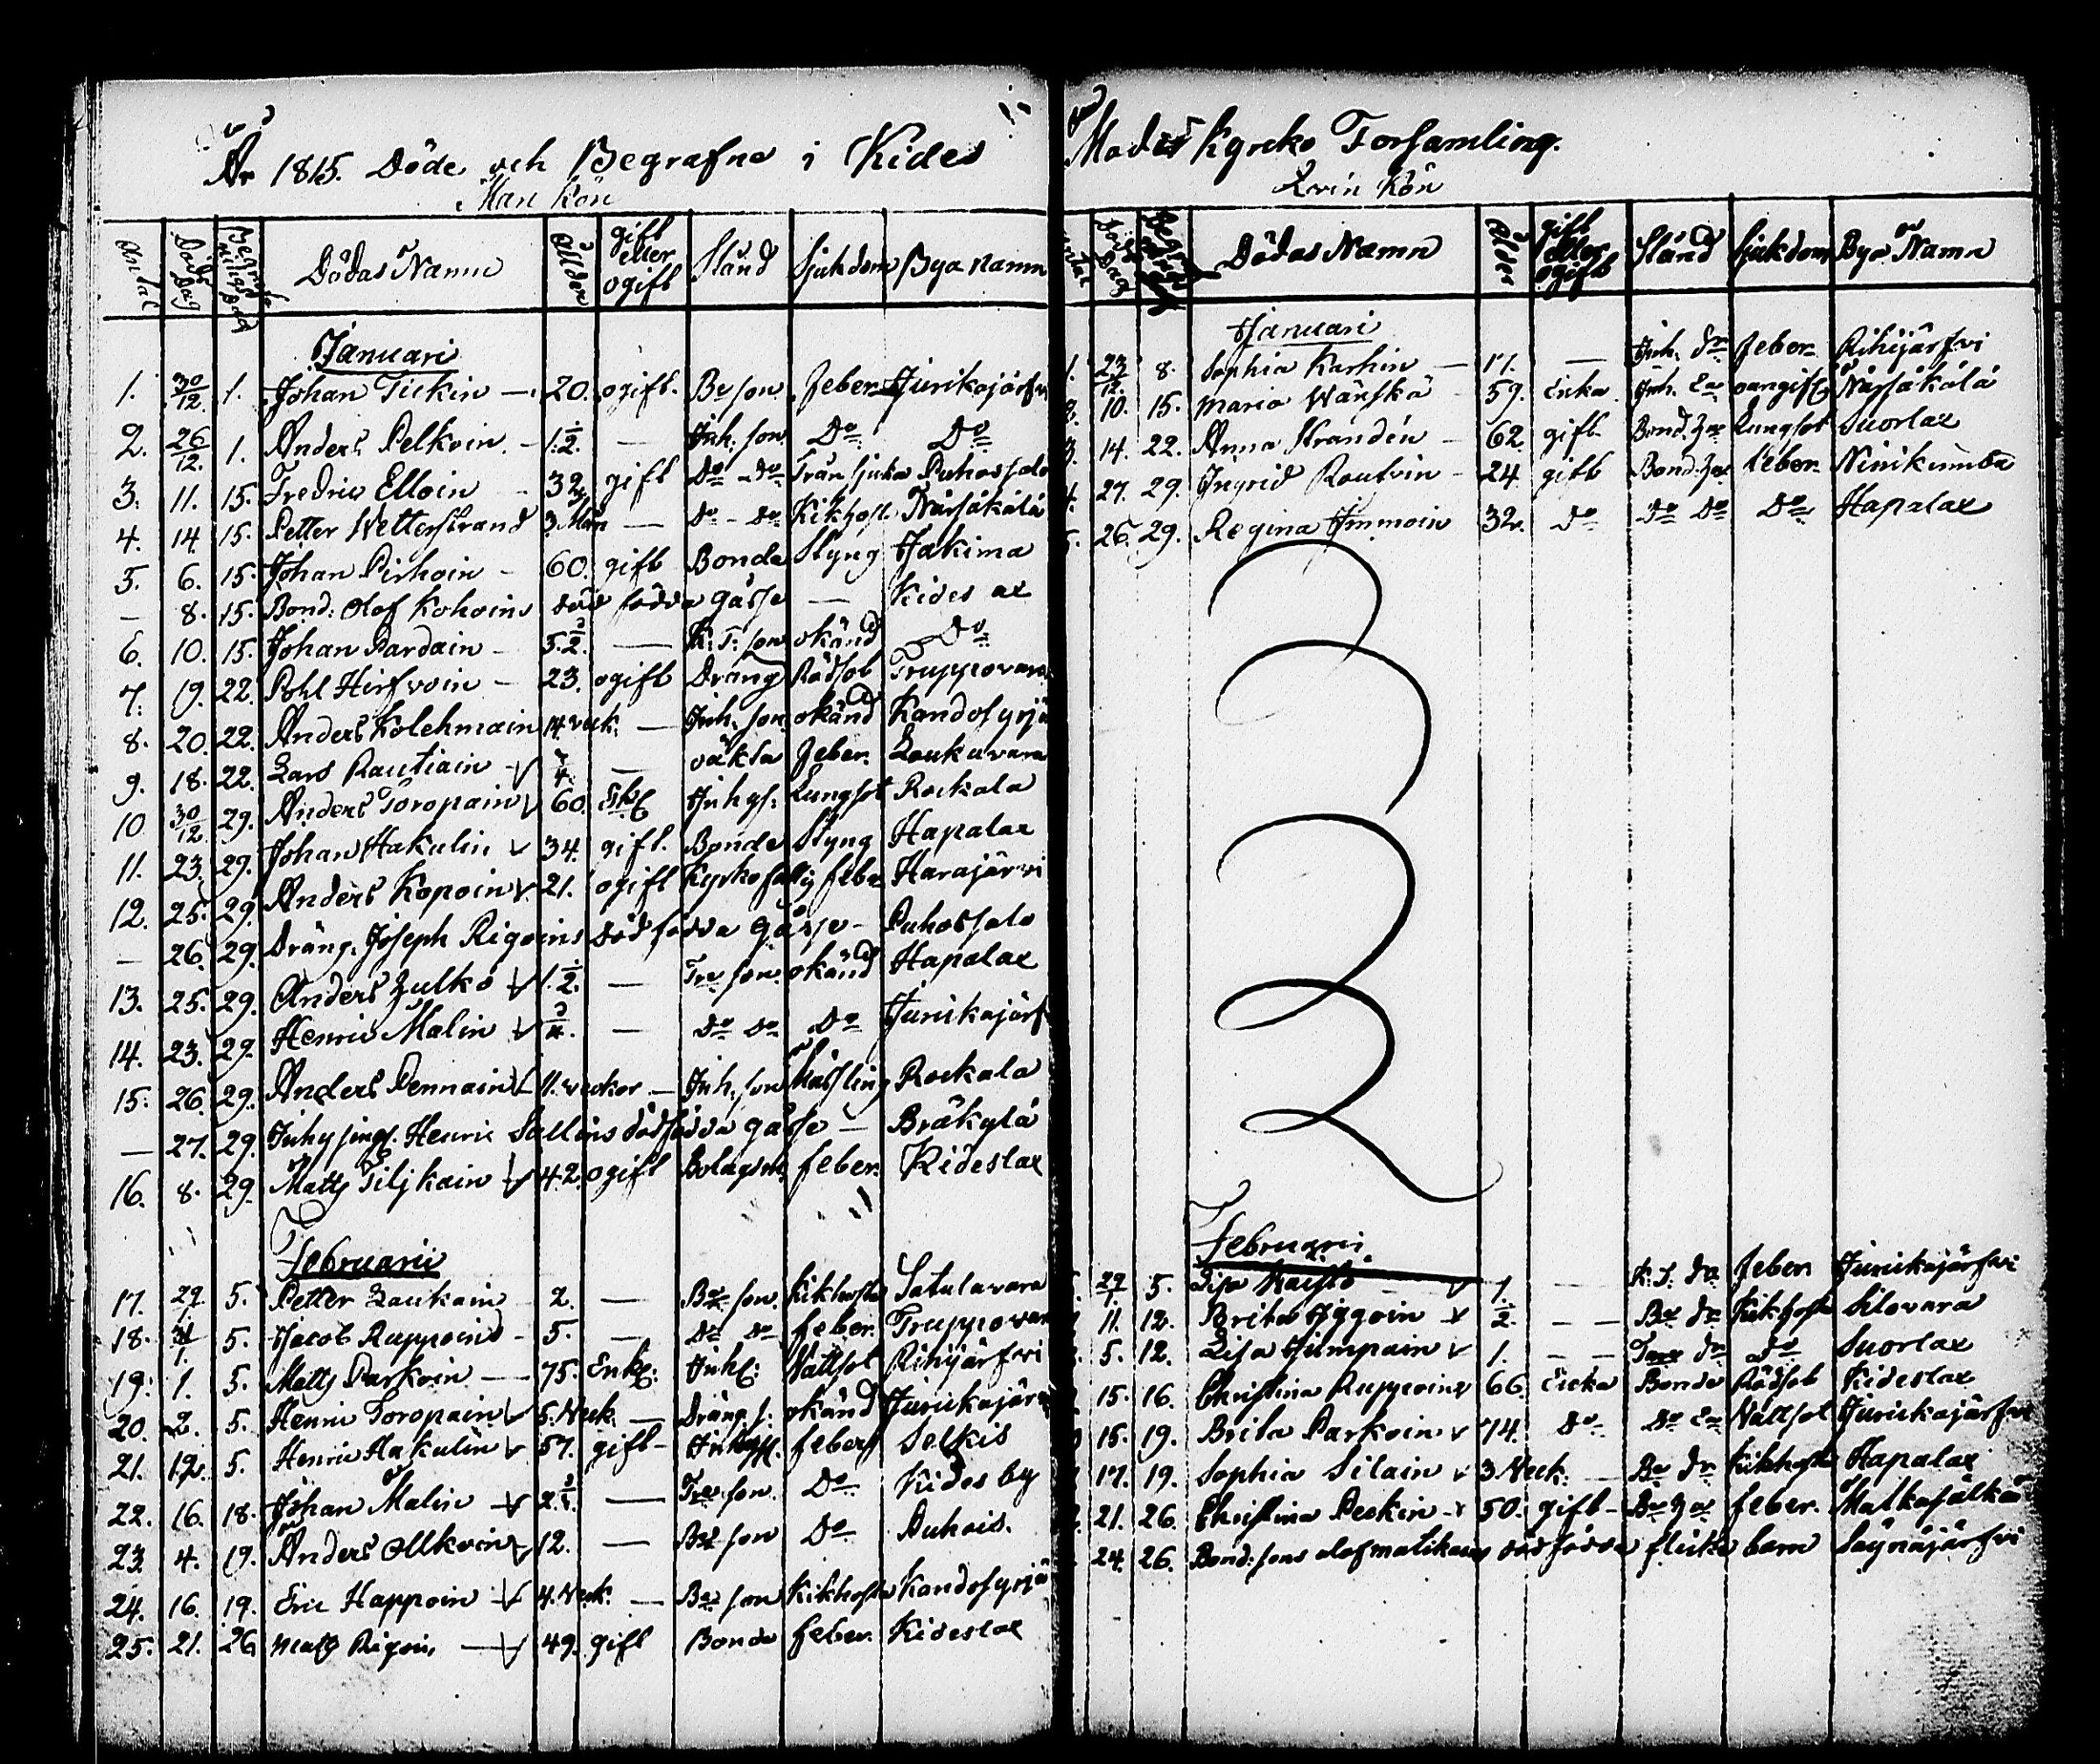 År 1815. Döde och Begrafne i Kides
Man Kön
Antal Död Dag Begrafnings Dag Dödas Namn Ålder gift eller ogift Stånd Sjukdom Bya namn
Januari
1. 30/12. 1. Johan Tickin — 20. ogift. Be son. Feber Juurikajärfvi
2. 26/12. 1. Anders Pelkoin — 1.½. — Inh: son Do Do
3. 11. 15. Fredric Elloin 32. gift Do Do Trånsjuka Puhossalo
4. 14. 15. Petter Wetterstrand 3. Mån — Do - Do Kikhost. Närsäkälä
5. 6. 15. Johan Pirhoin — 60. gift Bonde Styng Jakima
— 8. 15. Bond: Olof Kohoins död födda gåsse — Kides ax
6. 10. 15. Johan Pardain — 5.½. — K: T: son okänd Do
7. 19. 22. Pohl Hirfvoin — 23. ogift Dräng Rödsot Truppovara
8. 20. 22. Anders Kolehmain 14. veck. — Inh: son okänd Kandosyrjä
9. 18. 22. Lars Rautiain ¾ — oäkta Feber. Loukuvara
10 30/12 29. Anders Toropain 60. Enkl Inhys: Lungsot Rockala
11. 23. 29. Johan Hakulin 34. gift. Bonde Styng Hapalax
12. 25. 29. Anders Kopoin 21. ogift Kyrkofattig feber Harajärvi
— 26. 29. Dräng. Joseph Rigoins död födda gåsse — Puhossalo
13. 25. 29. Anders Zulko 1.½. — Tre son okänd Hapalax
14. 23. 29. Henric Malin ¾. — Do Do Do Juurikajärf
15. 26. 29. Anders Pennain 11. veckor — Inh: son Mässling Rockala
— 27. 29. Inhysings. Henric Sallins dödfödda gåsse — Bräkylä
16. 8. 29. Matts Tiljkain 42. ogift Bolagsm. feber. Kideslax
Februarii
17. 29/1 5. Petter Laukain 2. — Be son. Kikhosta Satulavara
18. 31/1. 5. Jacob Ruppoin — 5. — Do Do feber. Truppovara
19. 1. 5. Matts Parkoin — 75. Enkl: Inhl: Vattsot Rihijärfvi
20. 2. 5. Henric Toropain 5. Veck. — Dräng s: okänd Juurikajärf
21. 12. 5. Henric Hakulin 57. gift — Inhys. feber Selkis
22. 16. 18. Johan Malin 2.¾. — Tre son. Do Kides by
23 4. 19. Anders Ollkoin 12. — Be son Do Puhois.
24. 16. 19. Eric Happoin 4. Veck. — Be son Kikhosta Kandosyrjä
25. 21. 26 Matts Rigoin — 49. gift Bonde feber. Kideslax
Moder Kyrcko Forsamling.
Qvin Kön
Antal Död Dag Begrafnings Dag Dödas Namn Ålder gift eller ogift Stånd Sjukdom Bya Namn
Januari
1. 23/12. 8. Sophia Karhin — 17. — Inh. dr Feber Rihijärfvi
2. 10. 15. Maria Wänskä 59. Encka Inh. Ea Närsäkälä
3. 14. 22. Anna Strandén — 62 gift Bond. Lungsot Suorlax
4. 27. 29. Ingrid Routvin — 24 gift Bond. feber Niinikumba
5. 26. 29. Regina Immoin 32. Do Do Do Do Hapalax
Februarii.
29/1. 5. Lisa Kaisto 1. — K: T: dr Feber. Juurikajärfvi
11. 12. Brita Iggoin ½. — — Be dr Kikhosta Silovara
5. 12. Lisa Jumpain 1. — — Tore dr Do Suorlax
15. 16. Christina Ruppoin 66. Encka Bonde Rödsot Kideslax
15. 19. Brita Parkoin 74. Do Do Ea Vattsot Juurikajärfvi
17. 19. Sophia Silain 3. Veck. — Be dr Kikhosta Hapalax
21. 26. Christina Peckin — 50. gift — Be feber. Matkasälkä
24. 26. Bond: sons Olof Matikains död födda flicka barn Säynäjärfvi